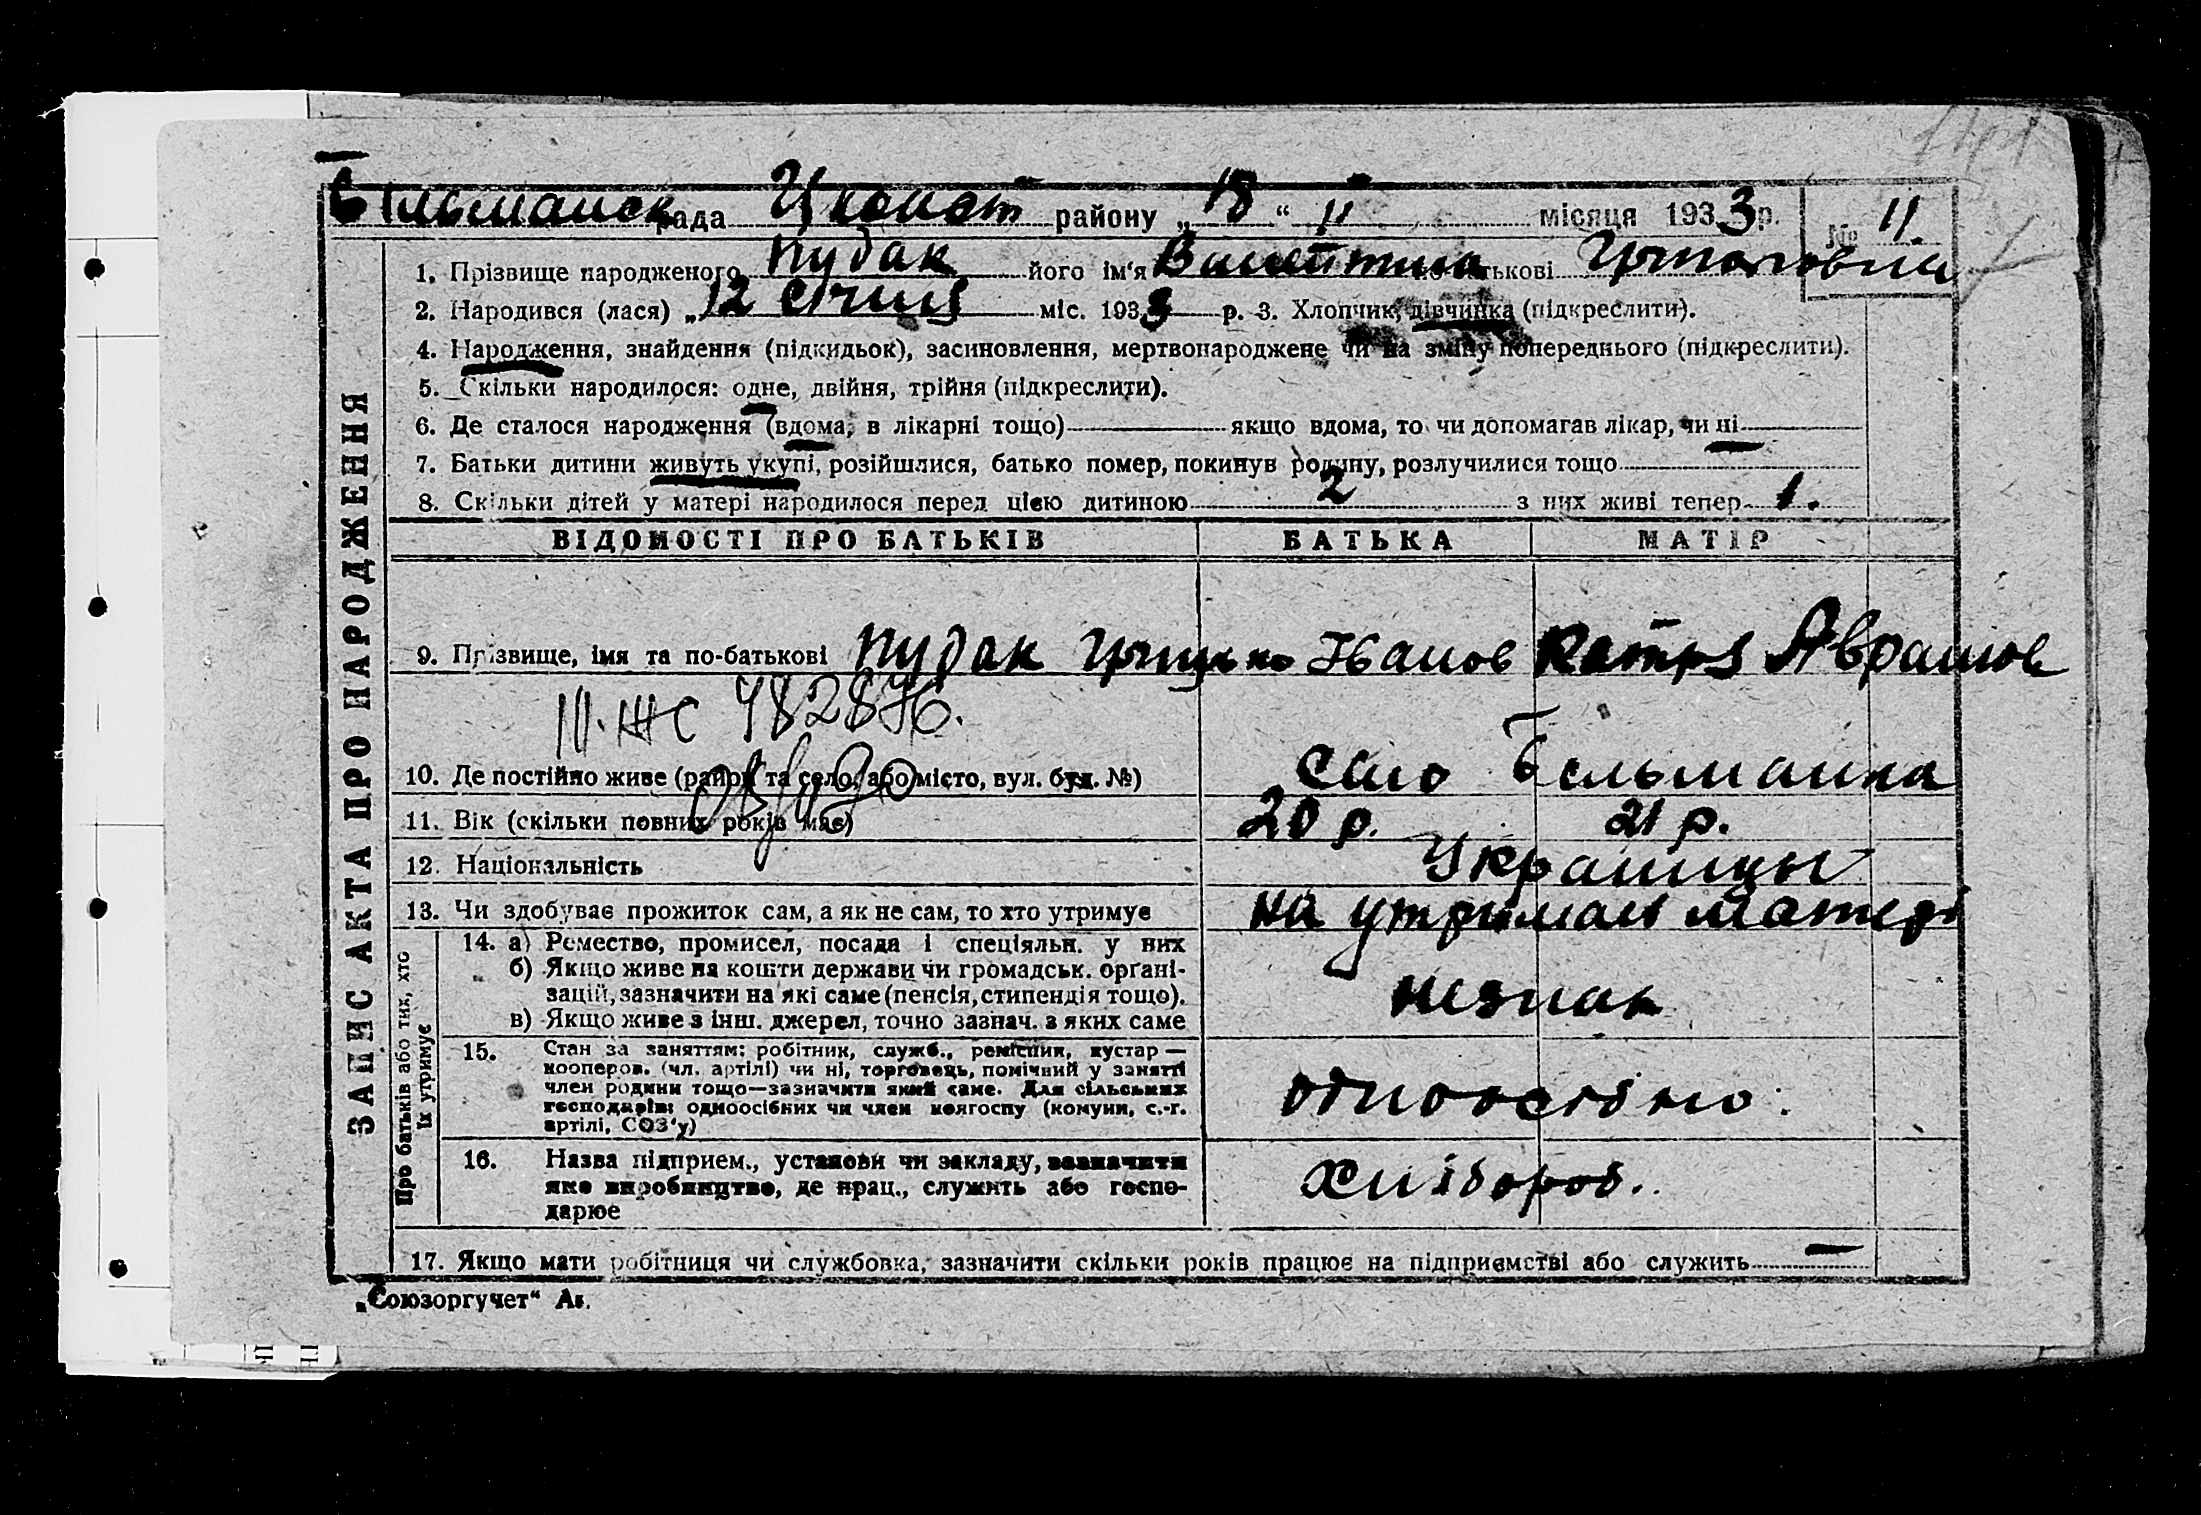 Більманськ рада Цконст району „18“ II місяця 1933 р. № 11.
1. Прізвище народженого Пудак його ім‘я Валентина по батькові
2. Народився (лася) „12 січня міс. 1933 р. 3. Хлопчик, дівчинка (підкреслити).
4. Народження, знайдення (підкидьок), засиновлення, мертвонароджене чи на зміну попереднього (підкреслити).
5. Скільки народилося: одне, двійня, трійня (підкреслити).
6. Де сталося народження (вдома, в лікарні тощо) якщо вдома, то чи допомагав лікар, чи ні
7. Батьки дитини живуть укупі, розійшлися, батько помер, покинув родину, розлучилися тощо
8. Скільки дітей у матері народилося перед цією дитиною 2 з них живі тепер 1.
ВІДОМОСТІ ПРО БАТЬКІВ БАТЬКА МАТІР
9. Прізвище, імя та по-батькові Пудак Грицько Іванов Катря Аврамов
III-ЖС 482876.
10. Де постійно живе (район та село, або місто, вул. буд. №) село Більманка
11. Вік (скільки повних років має) 20 р. 21 р.
12. Національність Украинцы
13. Чи здобуває прожиток сам, а як не сам, то хто утримує на утриман матері
14. а) Ремество, промисел, посада і спеціяльн. у них
б) Якщо живе на кошти держави чи громадськ. орґані-
зацій, зазначити на які саме (пенсія, стипендія тощо).
в) Якщо живе з інш. джерел, точно зазнач. з яких саме
незнан
15. Стан за заняттям: робітник, служб., ремісник, кустар —
кооперов. (чл. артілі) чи ні, торговець, помічний у занятті
член родини тощо—зазначити який саме. Для сільських
господарів: одноосібних чи член колгоспу (комуни, с.-г.
артілі, СОЗ‘у)
одноосібно.
16. Назва підприєм., установи чи закладу, зазначити
яке виробництво, де прац., служить або госпо-
дарює
хлібороб.
17. Якщо мати робітниця чи службовка, зазначити скільки років працює на підприємстві або служить —
„Союзоргучет“
ЗАПИС АКТА ПРО НАРОДЖЕННЯ
Про батьків або тих, хто
їх утримує